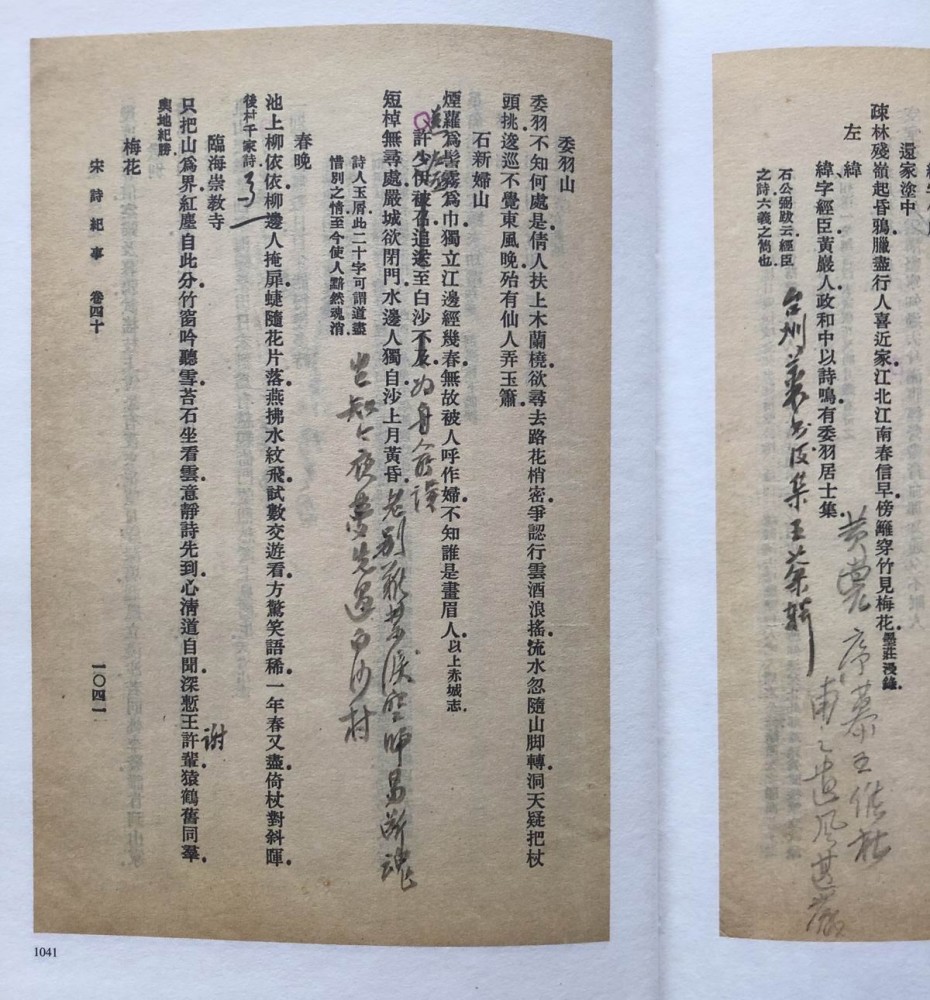 還家塗中
疎林殘嶺起昏鴉臘盡行人喜近家江北江南春信早傍籬穿竹見梅花墨莊漫錄
左緯
緯字經臣黃巖人政和中以詩鳴有委羽居士集
石公弼跋云經臣
之詩六義之筒也
委羽山
委羽不知何處是倩人扶上木蘭橈欲尋去路花梢密爭認行雲酒浪搖流水忽隨山脚轉洞天疑把杖
頭挑逡巡不覺東風晚殆有仙人弄玉簫
石新婦山
煙蘿爲髻霧爲巾獨立江邊經幾春無故被人呼作婦不知誰是畫眉人以上赤城志
許少伊被召追送至白沙不及 爲舟人所誤
短棹無尋處嚴城欲閉門水邊人獨自沙上月黃昏
詩人玉屑此二十字可謂道盡
惜別之情至今使人黯然魂消
豈知今夜夢先過白沙村
春晚
池上柳依依柳邊人掩扉蜨隨花片落燕拂水紋飛試數交遊看方驚笑語稀一年春又盡倚杖對斜暉
後村千家詩
臨海崇教寺
只把山爲界紅塵自此分竹窗吟聽雪苔石坐看雲意靜詩先到心淸道自聞深慙王許輩猿鶴舊同羣
謝
輿地紀勝
梅花
宋詩紀事 卷四十
一〇四一
1041